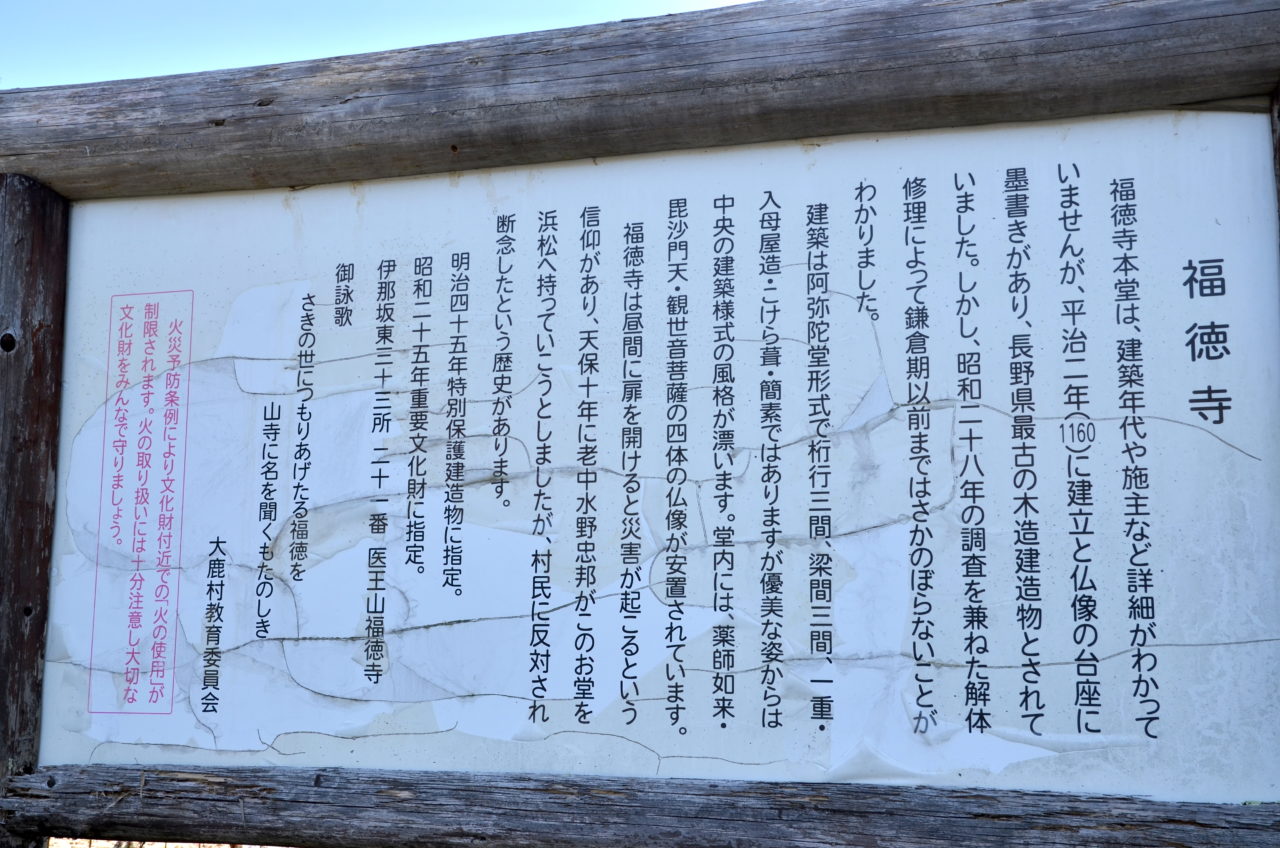 福徳寺
福徳寺本堂は、建築年代や施主など詳細がわかって
いませんが、平治二年(1160)に建立と仏像の台座に
墨書きがあり、長野県最古の木造建造物とされて
いました。しかし、昭和二十八年の調査を兼ねた解体
修理によって鎌倉期以前まではさかのぼらないことが
わかりました。
建築は阿弥陀堂形式で桁行三間、梁間三間、一重・
入母屋造・こけら葺・簡素ではありますが優美な姿からは
中央の建築様式の風格が漂います。堂内には、薬師如来・
毘沙門天・観世音菩薩の四体の仏像が安置されています。
福徳寺は昼間に扉を開けると災害が起こるという
信仰があり、天保十年に老中水野忠邦がこのお堂を
浜松へ持っていこうとしましたが、村民に反対され
断念したという歴史があります。
明治四十五年特別保護建造物に指定。
昭和二十五年重要文化財に指定。
伊那坂東三十三所 二十一番 医王山福徳寺
御詠歌
さきの世につもりあげたる福徳を
山寺に名を聞くもたのしき
大鹿村教育委員会
火災予防条例により文化財付近での「火の使用」が
制限されます。火の取り扱いには十分注意し大切な
文化財をみんなで守りましょう。